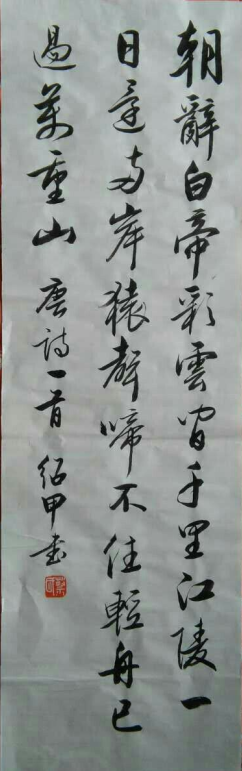 朝辭白帝彩雲間千里江陵一
日還兩岸猿聲啼不住輕舟已
過萬重山 唐詩一首 紹甲書